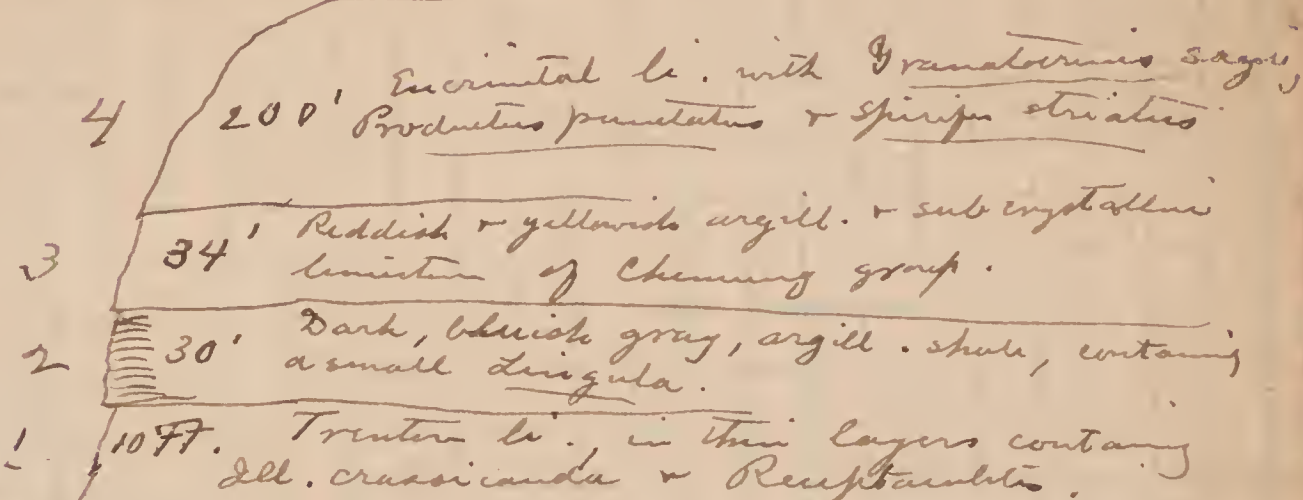 Encrinital li. with Granatocrinus sayi,
4 200' Productus punctatus & spirifer striatus
Reddish & yellowish argill. & subcrystalline
3 34' limestone of Chemung group.
2 30' Dark, bluish gray, argill. shale, containing
a small Lingula.
1 10 FT. Trenton li., in thin layers containing
Ill. crassicauda & Receptaculites.